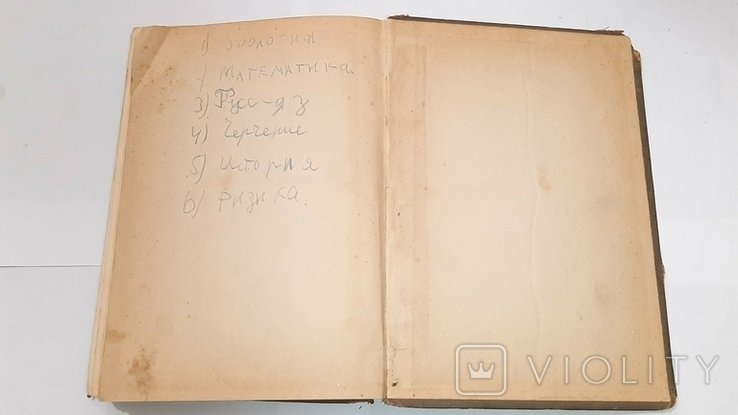 1) Зоология
2) Математика
3) Рус-яз
4) Черчение
5) История
6) Физика.
VIOLITY